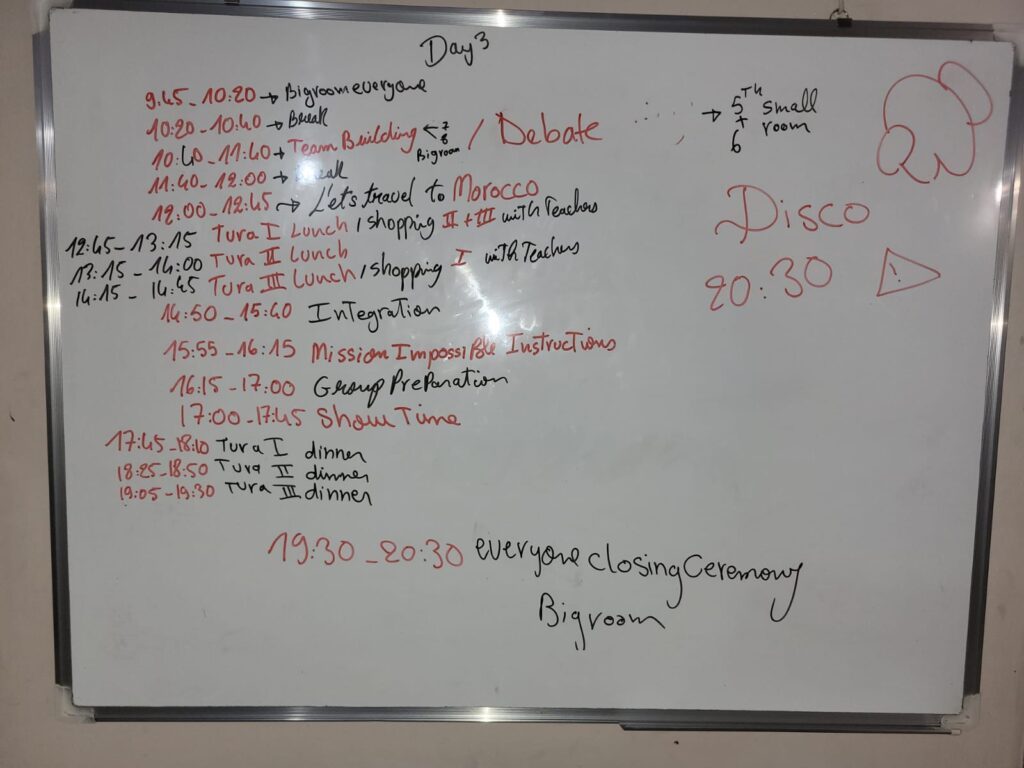 Day 3
9:45 - 10:20 → Bigroom everyone
10:20 - 10:40 → Break
10:40 - 11:40 → Team Building ← 7 8 Bigroom / Debate ..... → 5TH + 6 small room
11:40 - 12:00 → Break
12:00 - 12:45 → Let's travel to Morocco
12:45 - 13:15 Tura I Lunch / shopping II + III with Teachers
13:15 - 14:00 Tura II Lunch
14:15 - 14:45 Tura III Lunch / shopping I with Teachers
14:50 - 15:40 Integration
15:55 - 16:15 Mission Impossible Instructions
16:15 - 17:00 Group Preparation
17:00 - 17:45 Show Time
17:45 - 18:10 Tura I dinner
18:25 - 18:50 Tura II dinner
19:05 - 19:30 Tura III dinner
19:30 - 20:30 everyone closing Ceremony
Bigroom
Disco
20:30 !